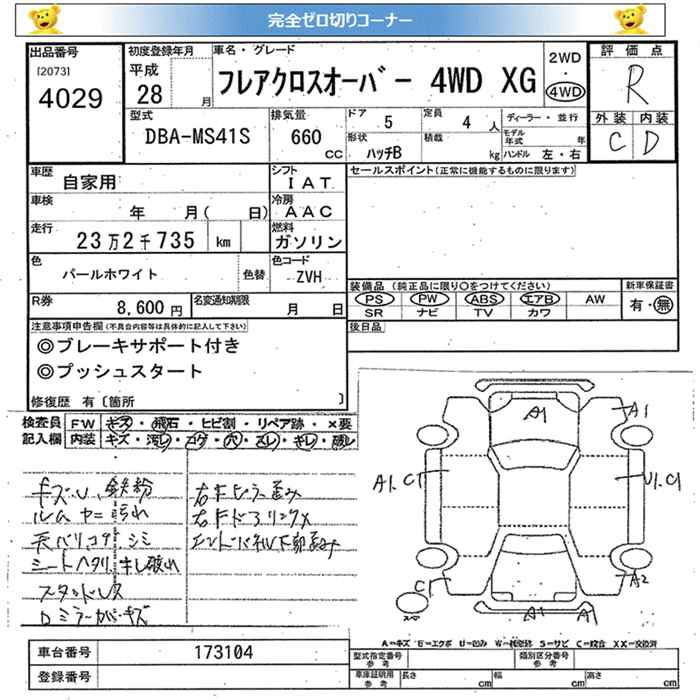 完全ゼロ切りコーナー
出品番号
[2073]
4029
初度登録年月
平成
28 月
車名・グレード
フレアクロスオーバー 4WD XG
2WD
・
4WD
評価点
R
外装 内装
C D
型式
DBA-MS41S
排気量
660
CC
ドア
5
定員
4 人
形状
ハッチB
積載
kg
ディーラー・並行
モデル年式 年
ハンドル 左・右
車歴
自家用
車検
年 月( 日)
走行
23万2千735 km
シフト
IAT
冷房
AAC
燃料
ガソリン
色
パールホワイト
色替
色コード
ZVH
R券
8,600円
名変通知期限
月 日
セールスポイント(正常に機能するものに限ります)
装備品(純正品に限り○をつけてください)
PS PW ABS エアB AW
SR ナビ TV カワ
新車保証書
有・無
後日品
注意事項申告欄(不具合内容等は具体的に記入して下さい)
◎ブレーキサポート付き
◎プッシュスタート
修復歴 有〔箇所 〕
検査員
記入欄
FW キズ・飛石・ヒビ割・リペア跡・×要
内装 キズ・汚レ・コゲ・穴・スレ・キレ・感レ
キズ.U、鉄粉
ルーム ヤニ 汚れ
天バリ コゲ シミ
シートヘタリ、キレ破れ
スタッドレス
ロミラーカバーキズ
右Fピラー歪み
右Fドアリンク×
A1
A1
A1.C1
U1.C1
C1
A2
A1
A1
A=キズ E=エクボ U=凹み W=補修跡 S=サビ C=腐食 XX=交換済
車台番号
173104
登録番号
型式指定番号
参考
類別区分番号
参考
車庫証明用
参考
長さ cm
幅 cm
高さ cm